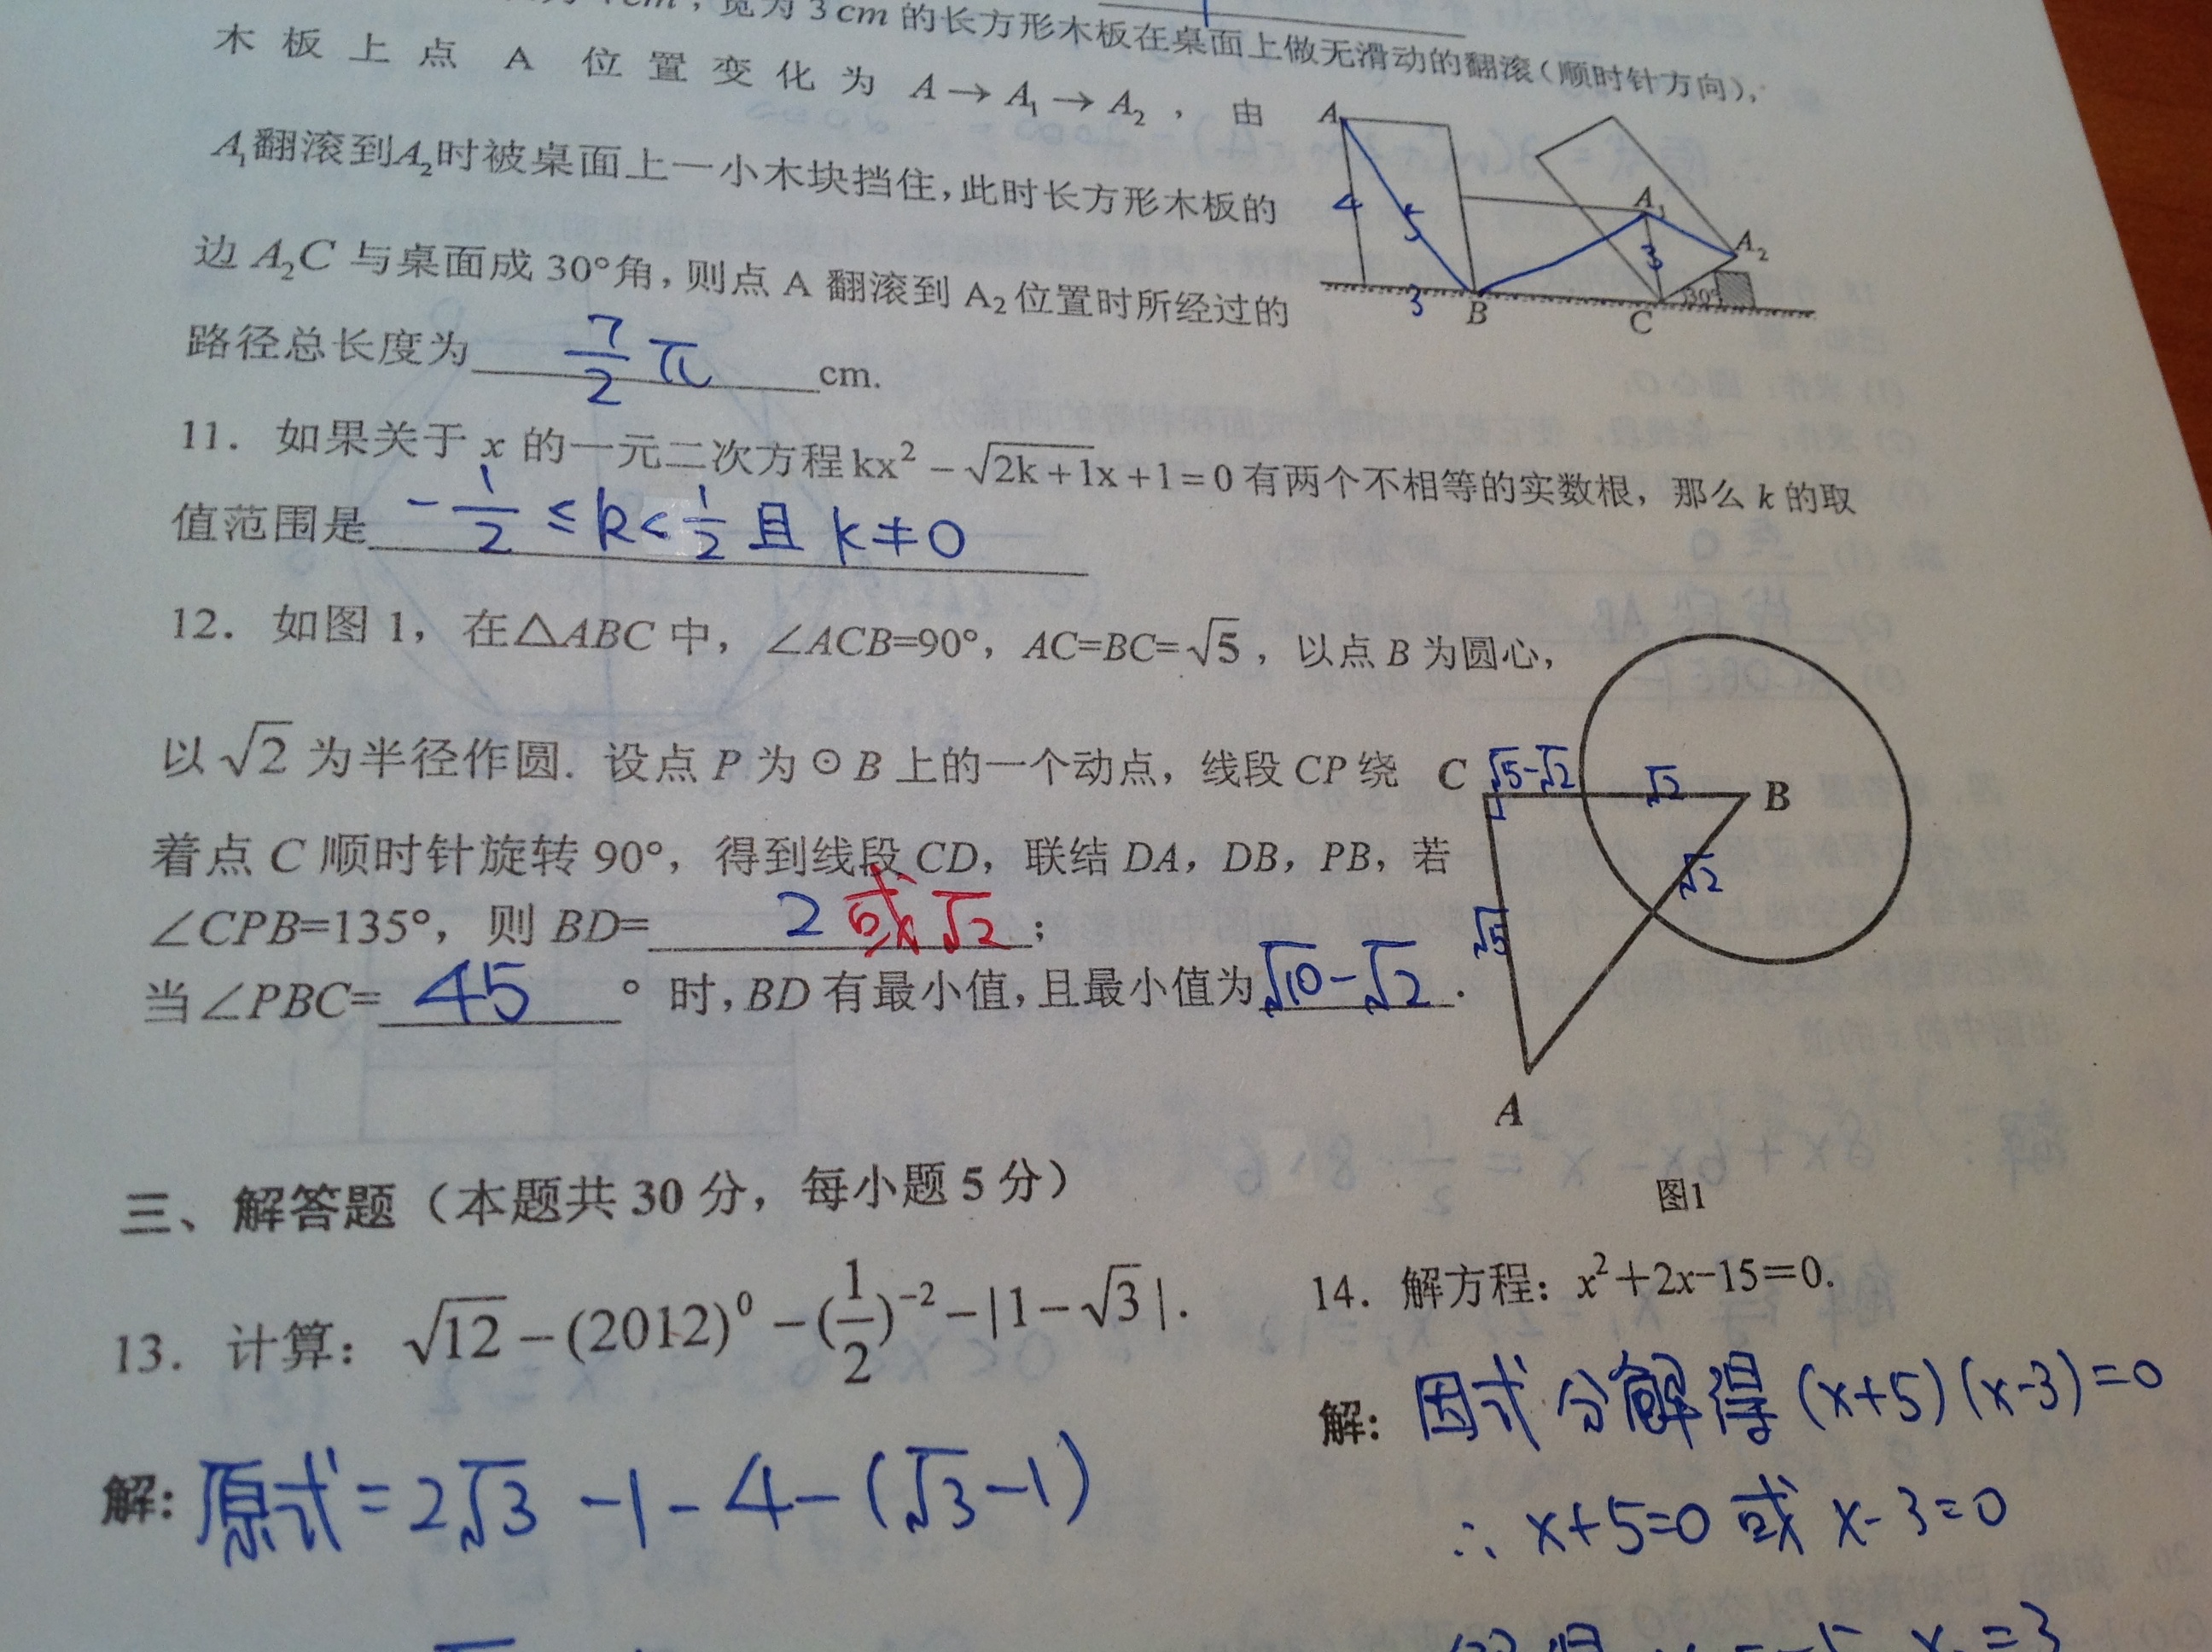 4cm，宽为3cm的长方形木板在桌面上做无滑动的翻滚（顺时针方向），
木板上点A位置变化为A→A₁→A₂，由
A₁翻滚到A₂时被桌面上一小木块挡住，此时长方形木板的
边A₂C与桌面成30°角，则点A翻滚到A₂位置时所经过的
路径总长度为 7/2 π cm.
A
4
5
3
B
A₁
3
A₂
30°
C
11. 如果关于x的一元二次方程kx²-√(2k+1)x+1=0有两个不相等的实数根，那么k的取
值范围是 -1/2≤k<1/2且k≠0
12. 如图1，在△ABC中，∠ACB=90°，AC=BC=√5，以点B为圆心，
以√2为半径作圆. 设点P为⊙B上的一个动点，线段CP绕
着点C顺时针旋转90°，得到线段CD，联结DA，DB，PB，若
∠CPB=135°，则BD= 2 或√2；
当∠PBC= 45 °时，BD有最小值，且最小值为 √10-√2.
C
√5-√2
√2
B
√2
√5
A
图1
三、解答题（本题共30分，每小题5分）
13. 计算：√12-(2012)⁰-(1/2)⁻²-|1-√3|.
解：原式=2√3-1-4-(√3-1)
14. 解方程：x²+2x-15=0.
解：因式分解得(x+5)(x-3)=0
∴ x+5=0或x-3=0